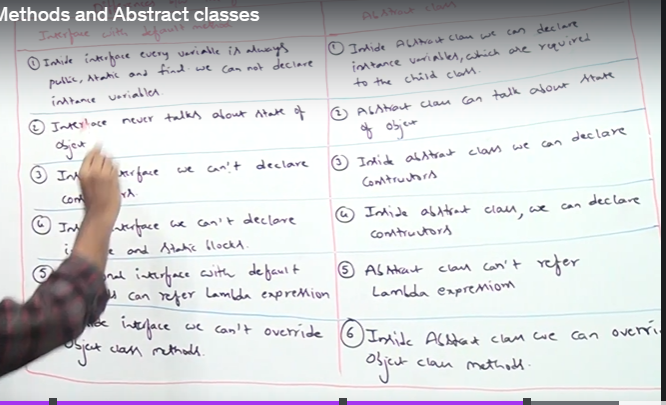 Methods and Abstract classes
Interface with default methods
Abstract class
① Inside interface every variable is always
public, static and final. we can not declare
instance variables.
① Inside Abstract class we can declare
instance variables, which are required
to the child class.
② Interface never talks about state of
object
② Abstract class can talk about state
of object
③ rface we can't declare
③ Inside abstract class we can declare
constructors
④ interface we can't declare
and static blocks.
④ Inside abstract class, we can declare
constructors
⑤ interface with default
can refer Lambda expression
⑤ Abstract class can't refer
Lambda expression
interface we can't override
Object class methods.
⑥ Inside Abstract class we can overri
Object class methods.